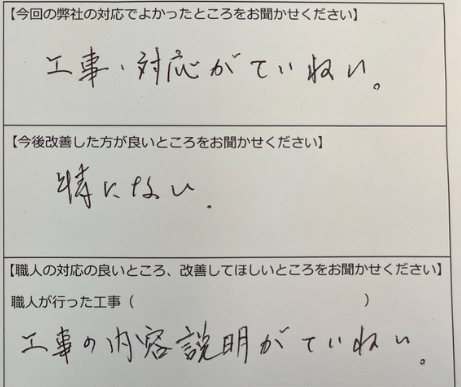 【今回の弊社の対応でよかったところをお聞かせください】
工事・対応がていねい。
【今後改善した方が良いところをお聞かせください】
特にない。
【職人の対応の良いところ、改善してほしいところをお聞かせください】
職人が行った工事（　　　　　　　　　　　　　　　　　）
工事の内容説明がていねい。